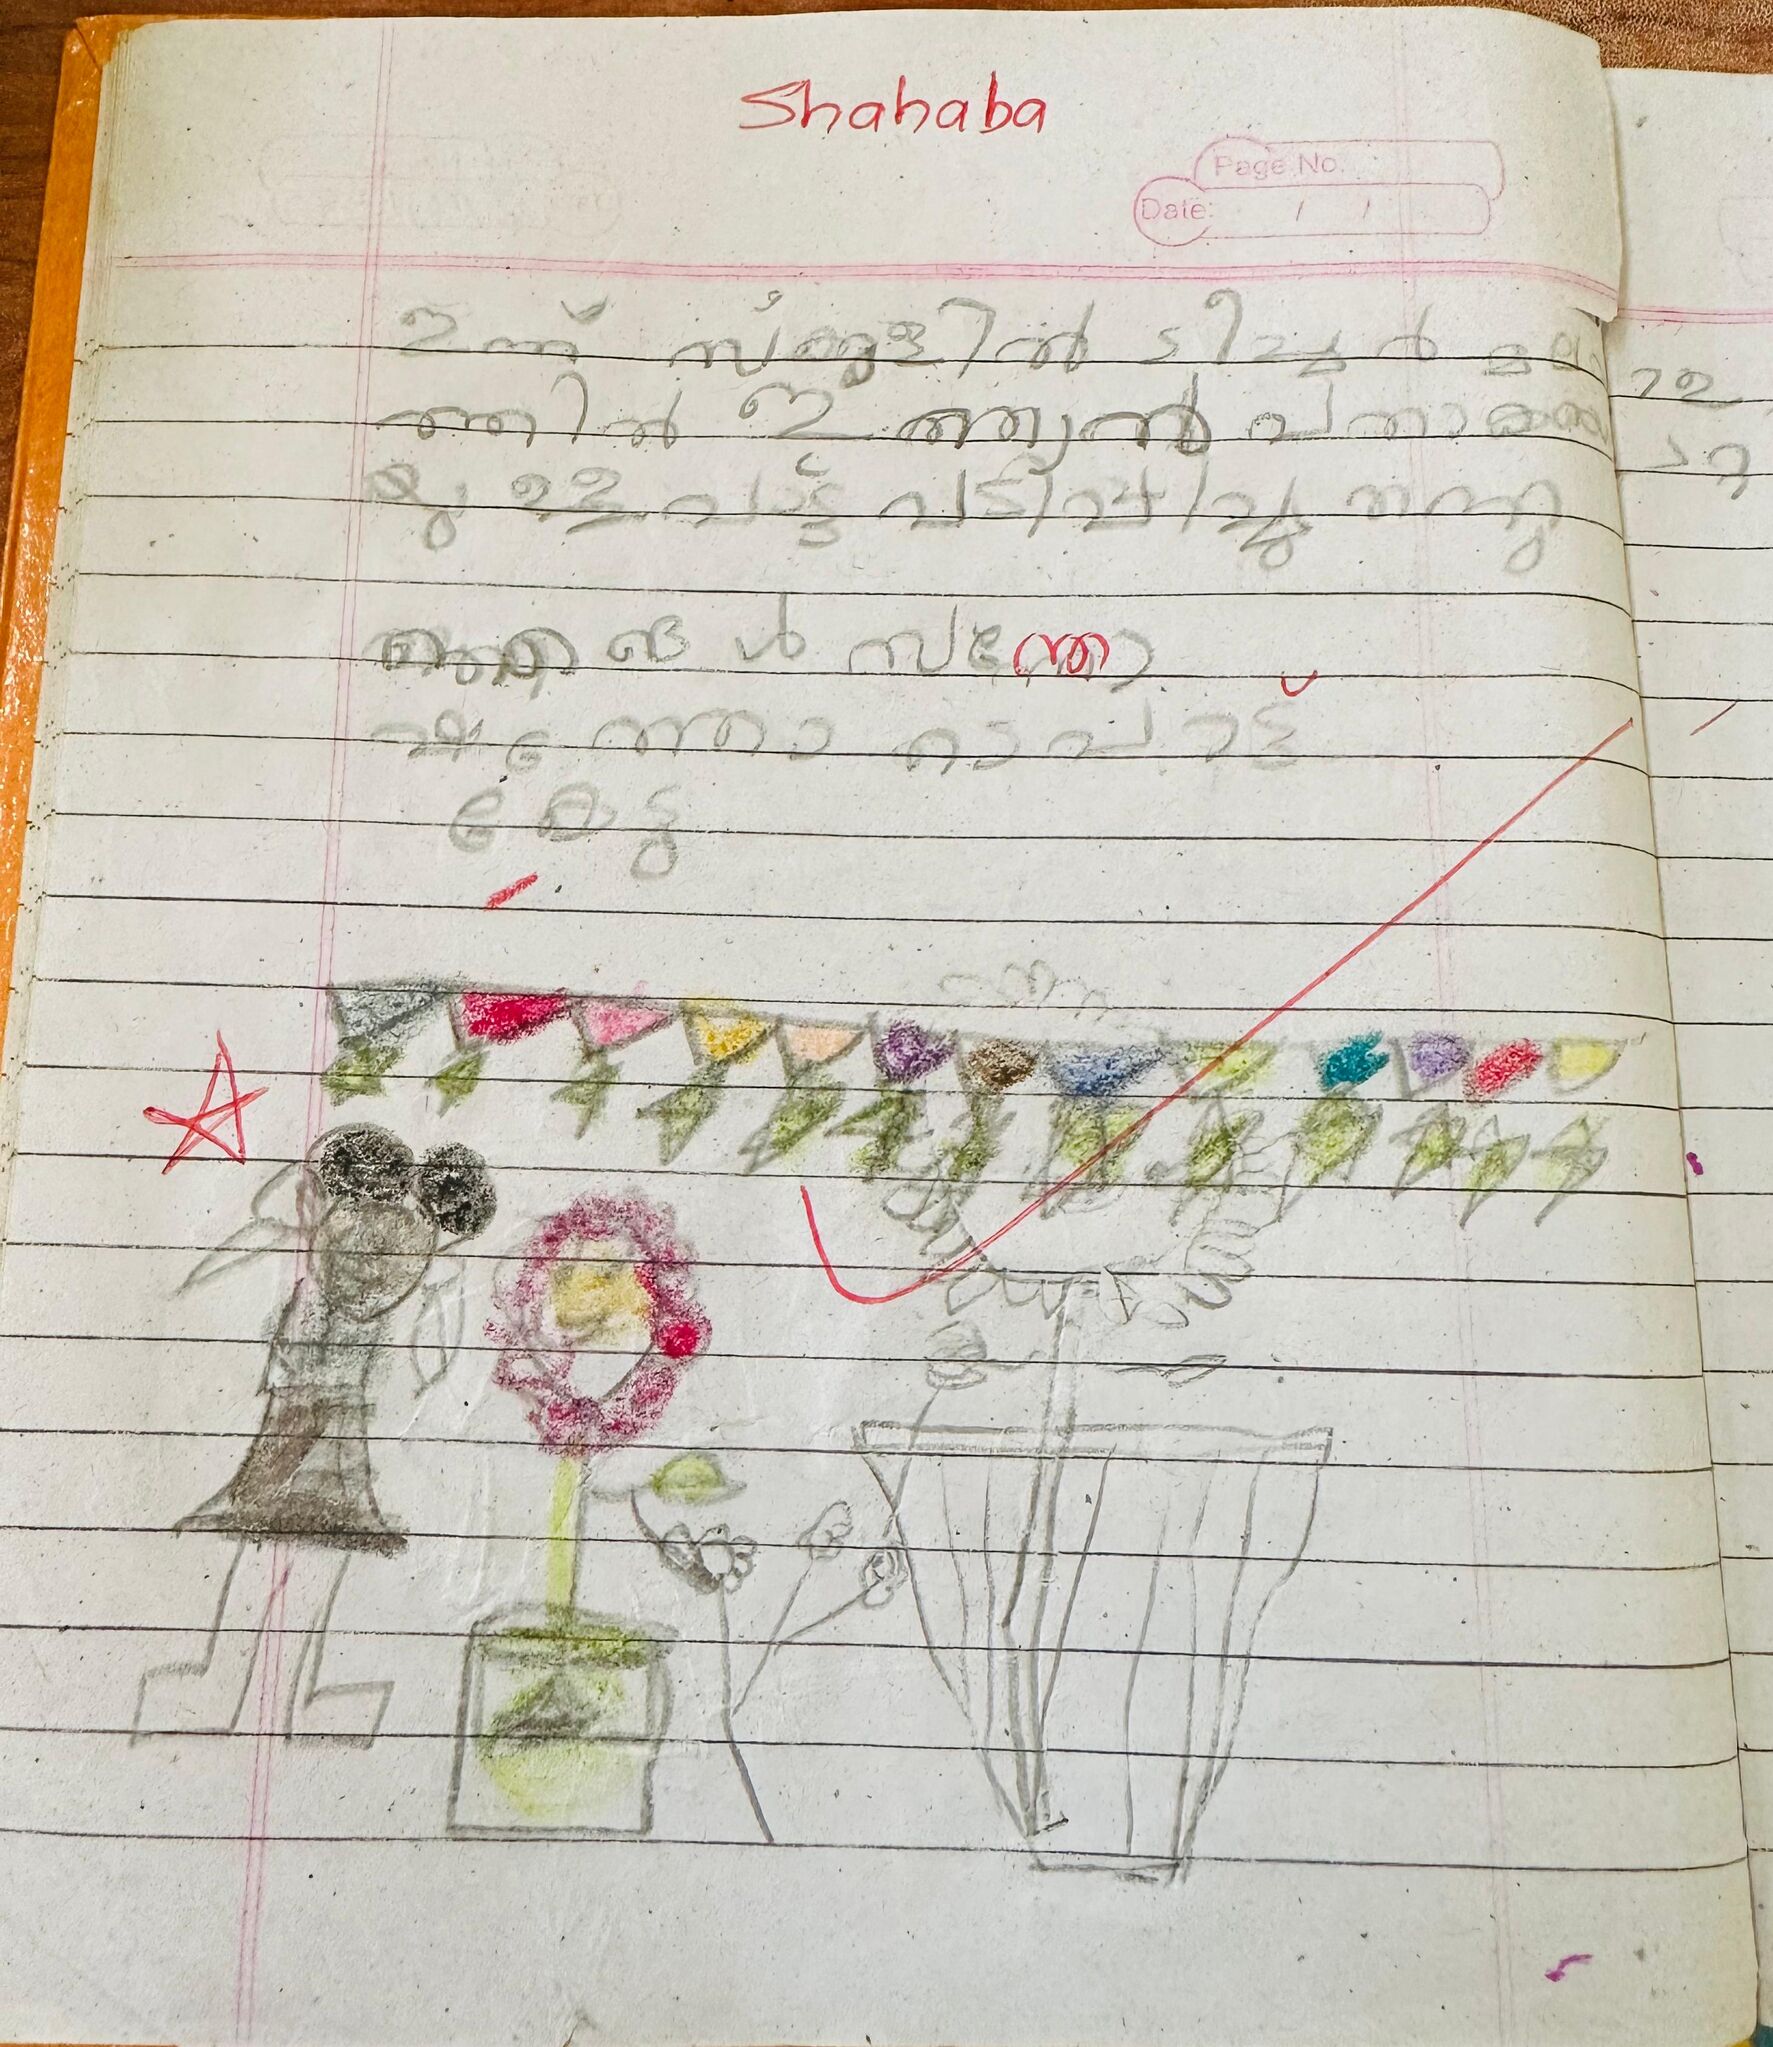 Shahaba
Page No.
Date: / /
ഇന്ന് സ്കൂളിൽ ടീച്ചർ
ത്തിൽ ഇന്ത്യൻ പതാക
ഉള്ള പട്ട് പടിപ്പിച്ചു തന്നു
ങൾ സന്തോ
ഷത്തോടെ പാട്ട്
കേട്ടു